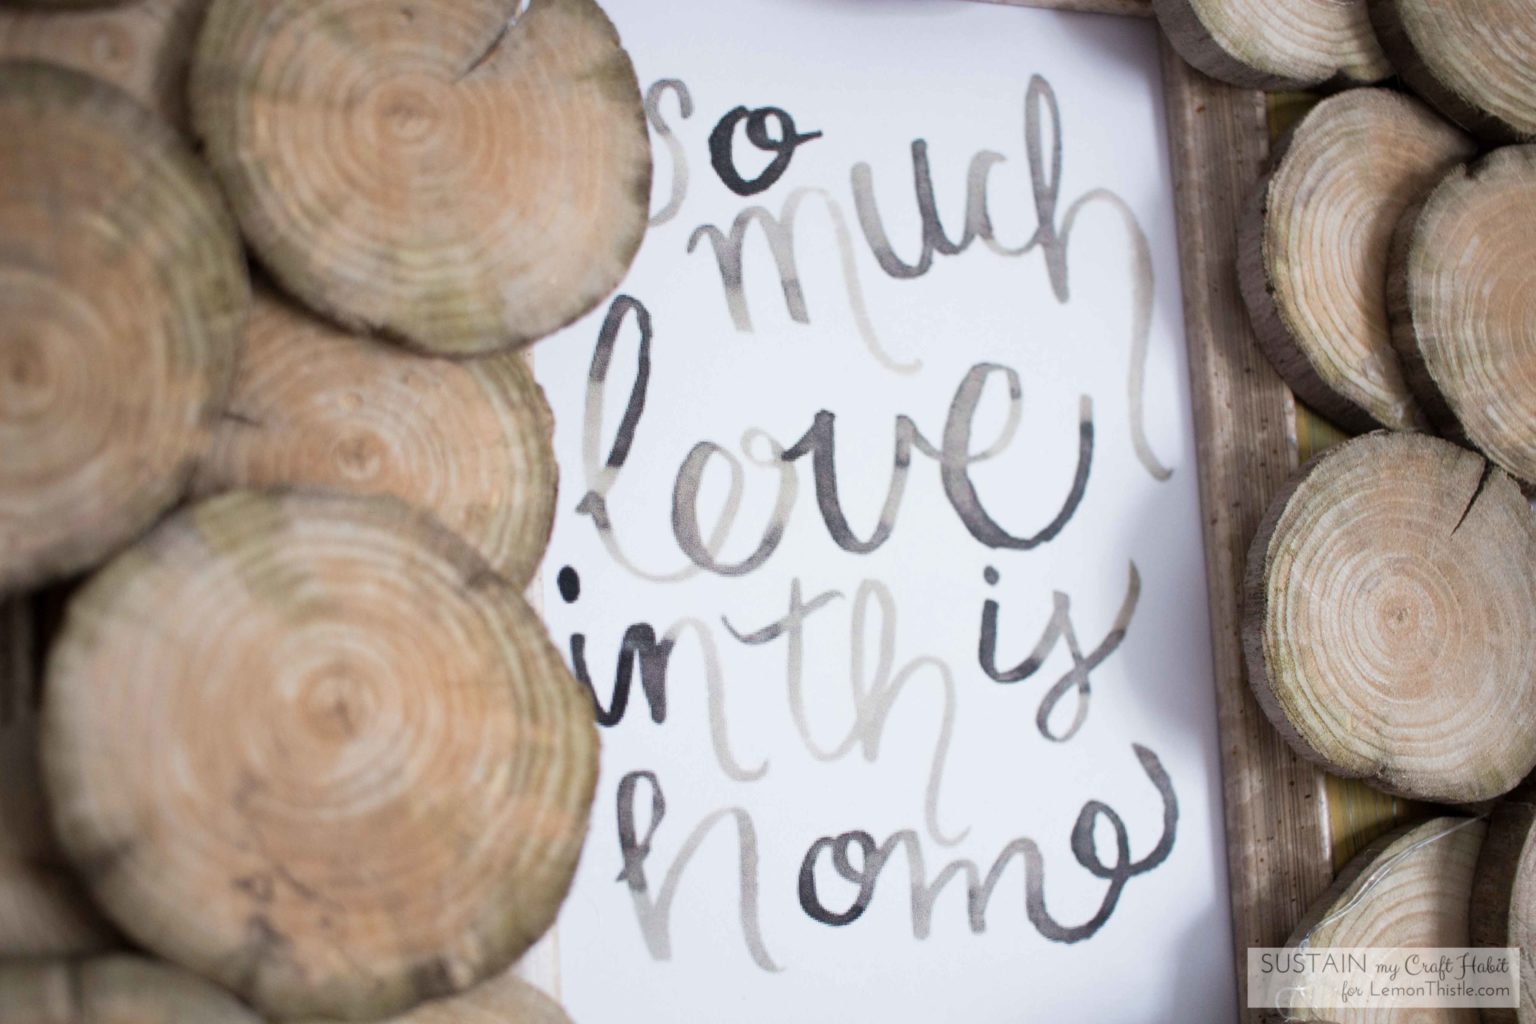 so much
love
in this
home
SUSTAIN my Craft Habit
for LemonThistle.com